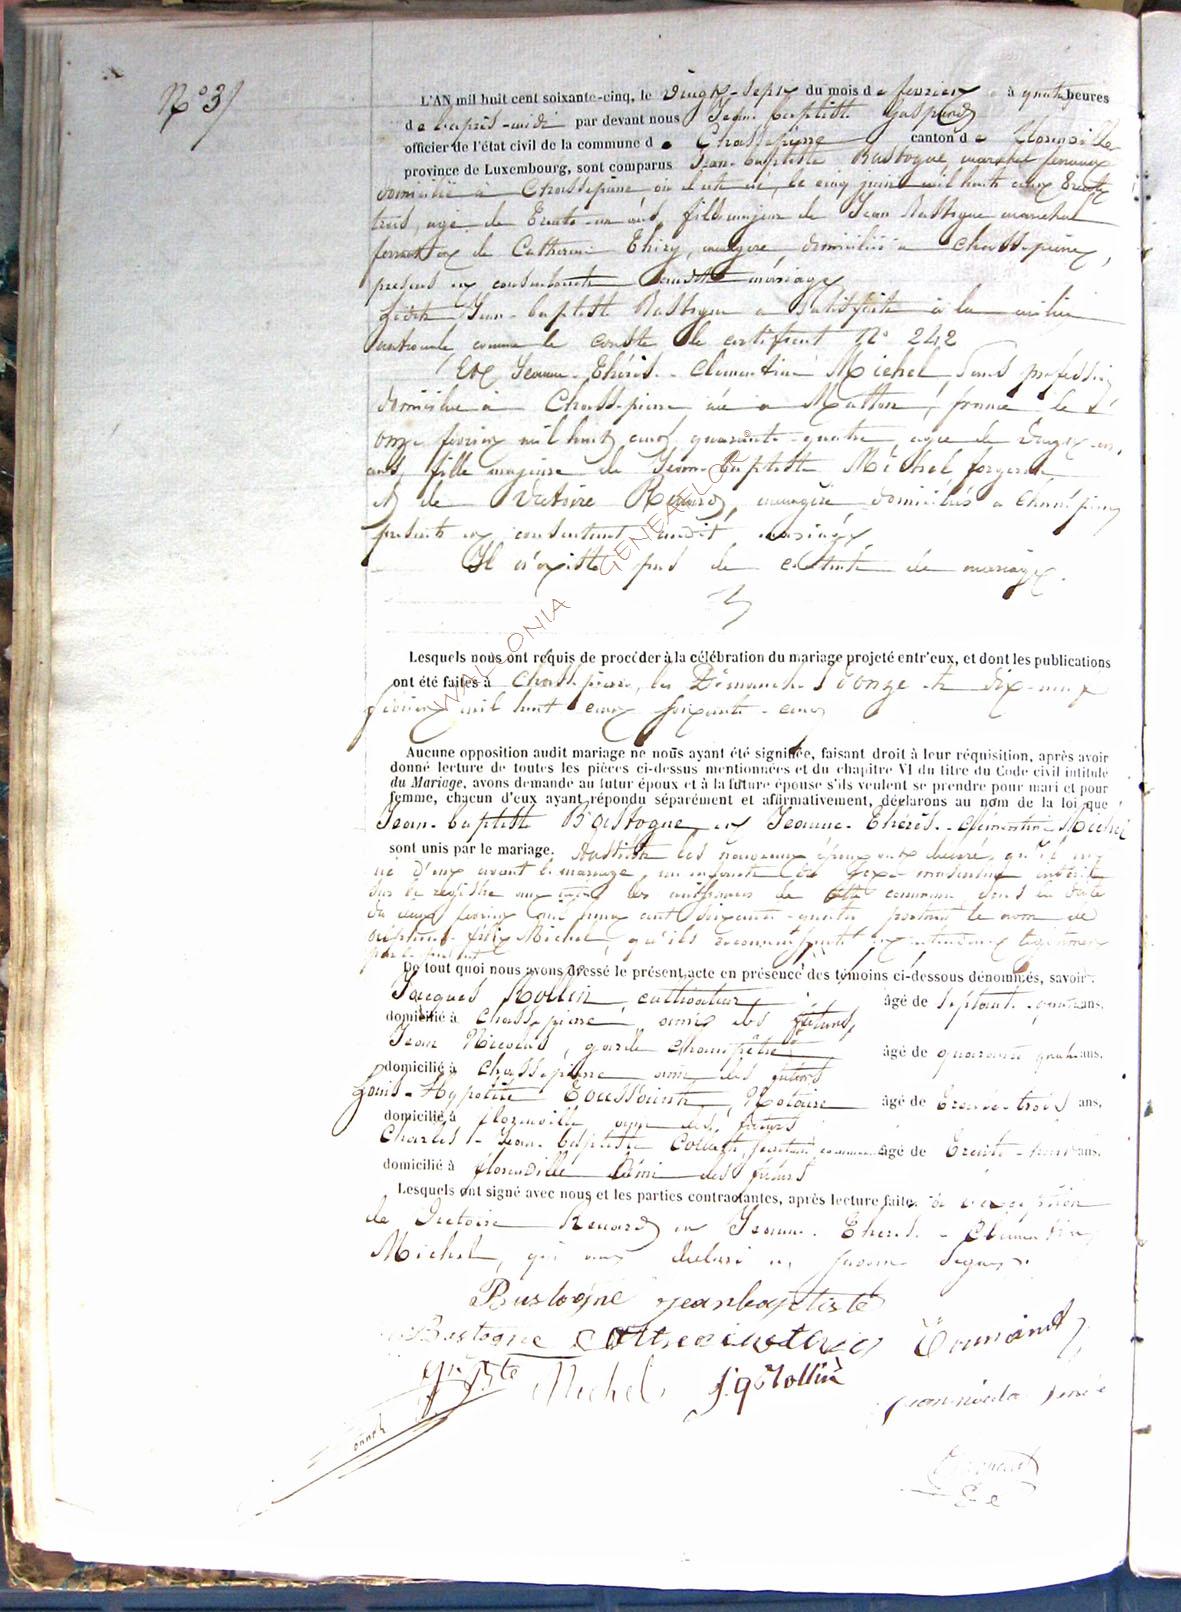 N° 3
L'AN mil huit cent soixante-cinq, le vingt-sept du mois de février à quatre heures
de l'après-midi par devant nous Jean baptiste Gaspard
officier de l'état civil de la commune de Chassepierre canton de Florenville
province de Luxembourg, sont comparus Jean-baptiste Bastogne, marechal ferrant
domicilié à Chassepierre où il est né, le cinq juin mil huit cent trente
trois, agé de trente-un ans, fils majeur de Jean Bastogne marechal
ferrant et de Catherine Thiry, menagere domiciliés à Chassepierre,
présens et consentants audit mariage
Ledit Jean-baptiste Bastogne a satisfait à la milice
nationale comme le conste le certificat N° 242
Et Jeanne-Thérès-Clementine Michel, sans profession
domiciliée à Chassepierre née à Matton, france le
onze fevrier mil huit cent quarante-quatre, agée de vingt-un
ans, fille majeure de Jean-baptiste Michel forgeron
et de Victoire Renard, menagère domiciliés à Chassepierre
présents et consentant audit mariage
Il n'existe pas de contrat de mariage.
Lesquels nous ont requis de procéder à la célébration du mariage projeté entr'eux, et dont les publications
ont été faites à Chassepierre, les Dimanches onze et dix-neuf
février mil huit cent soixante-cinq
Aucune opposition audit mariage ne nous ayant été signifiée, faisant droit à leur réquisition, après avoir
donné lecture de toutes les pièces ci-dessus mentionnées et du chapitre VI du titre du Code civil intitulé
du Mariage, avons demandé au futur époux et à la future épouse s'ils veulent se prendre pour mari et pour
femme, chacun d'eux ayant répondu séparément et affirmativement, déclarons au nom de la loi que
Jean-baptiste Bastogne et Jeanne-Thérès-Clémentine Michel
sont unis par le mariage. Aussitôt les nouveaux époux ont déclaré qu'il est
né d'eux avant le mariage, un enfant du sexe masculin inscrit
sur le registre aux naissances de cette commune sous la date
du deux fevrier mil huit cent soixante-quatre portant le nom de
félix Michel, qu'ils reconnaissent et légitiment
par le présent
De tout quoi nous avons dressé le présent acte en présence des témoins ci-dessous dénommés, savoir:
Jacques Rollin cultivateur âgé de septante-quatre ans.
domicilié à Chassepierre, amis des futurs,
Jean Nicolas, garde champêtre âgé de quarante quatre ans.
domicilié à Chassepierre ami des futurs
Louis-Hypolite Toussaint, Notaire âgé de trente-trois ans,
domicilié à florenville ami des futurs
Charles-Jean-baptiste Collet, secrétaire communal âgé de trente ans.
domicilié à florenville ami des futurs
Lesquels ont signé avec nous et les parties contractantes, après lecture faite, à exception
de Victoire Renard et Jeanne-Therès-Clementine
Michel, qui ont déclaré ne savoir signer.
Bastogne jeanbaptiste
Bastogne catherine Toussaint
Jn Bte Michel J.q Rollin
jean nicola
WALLONIA GENEAFLOT ©